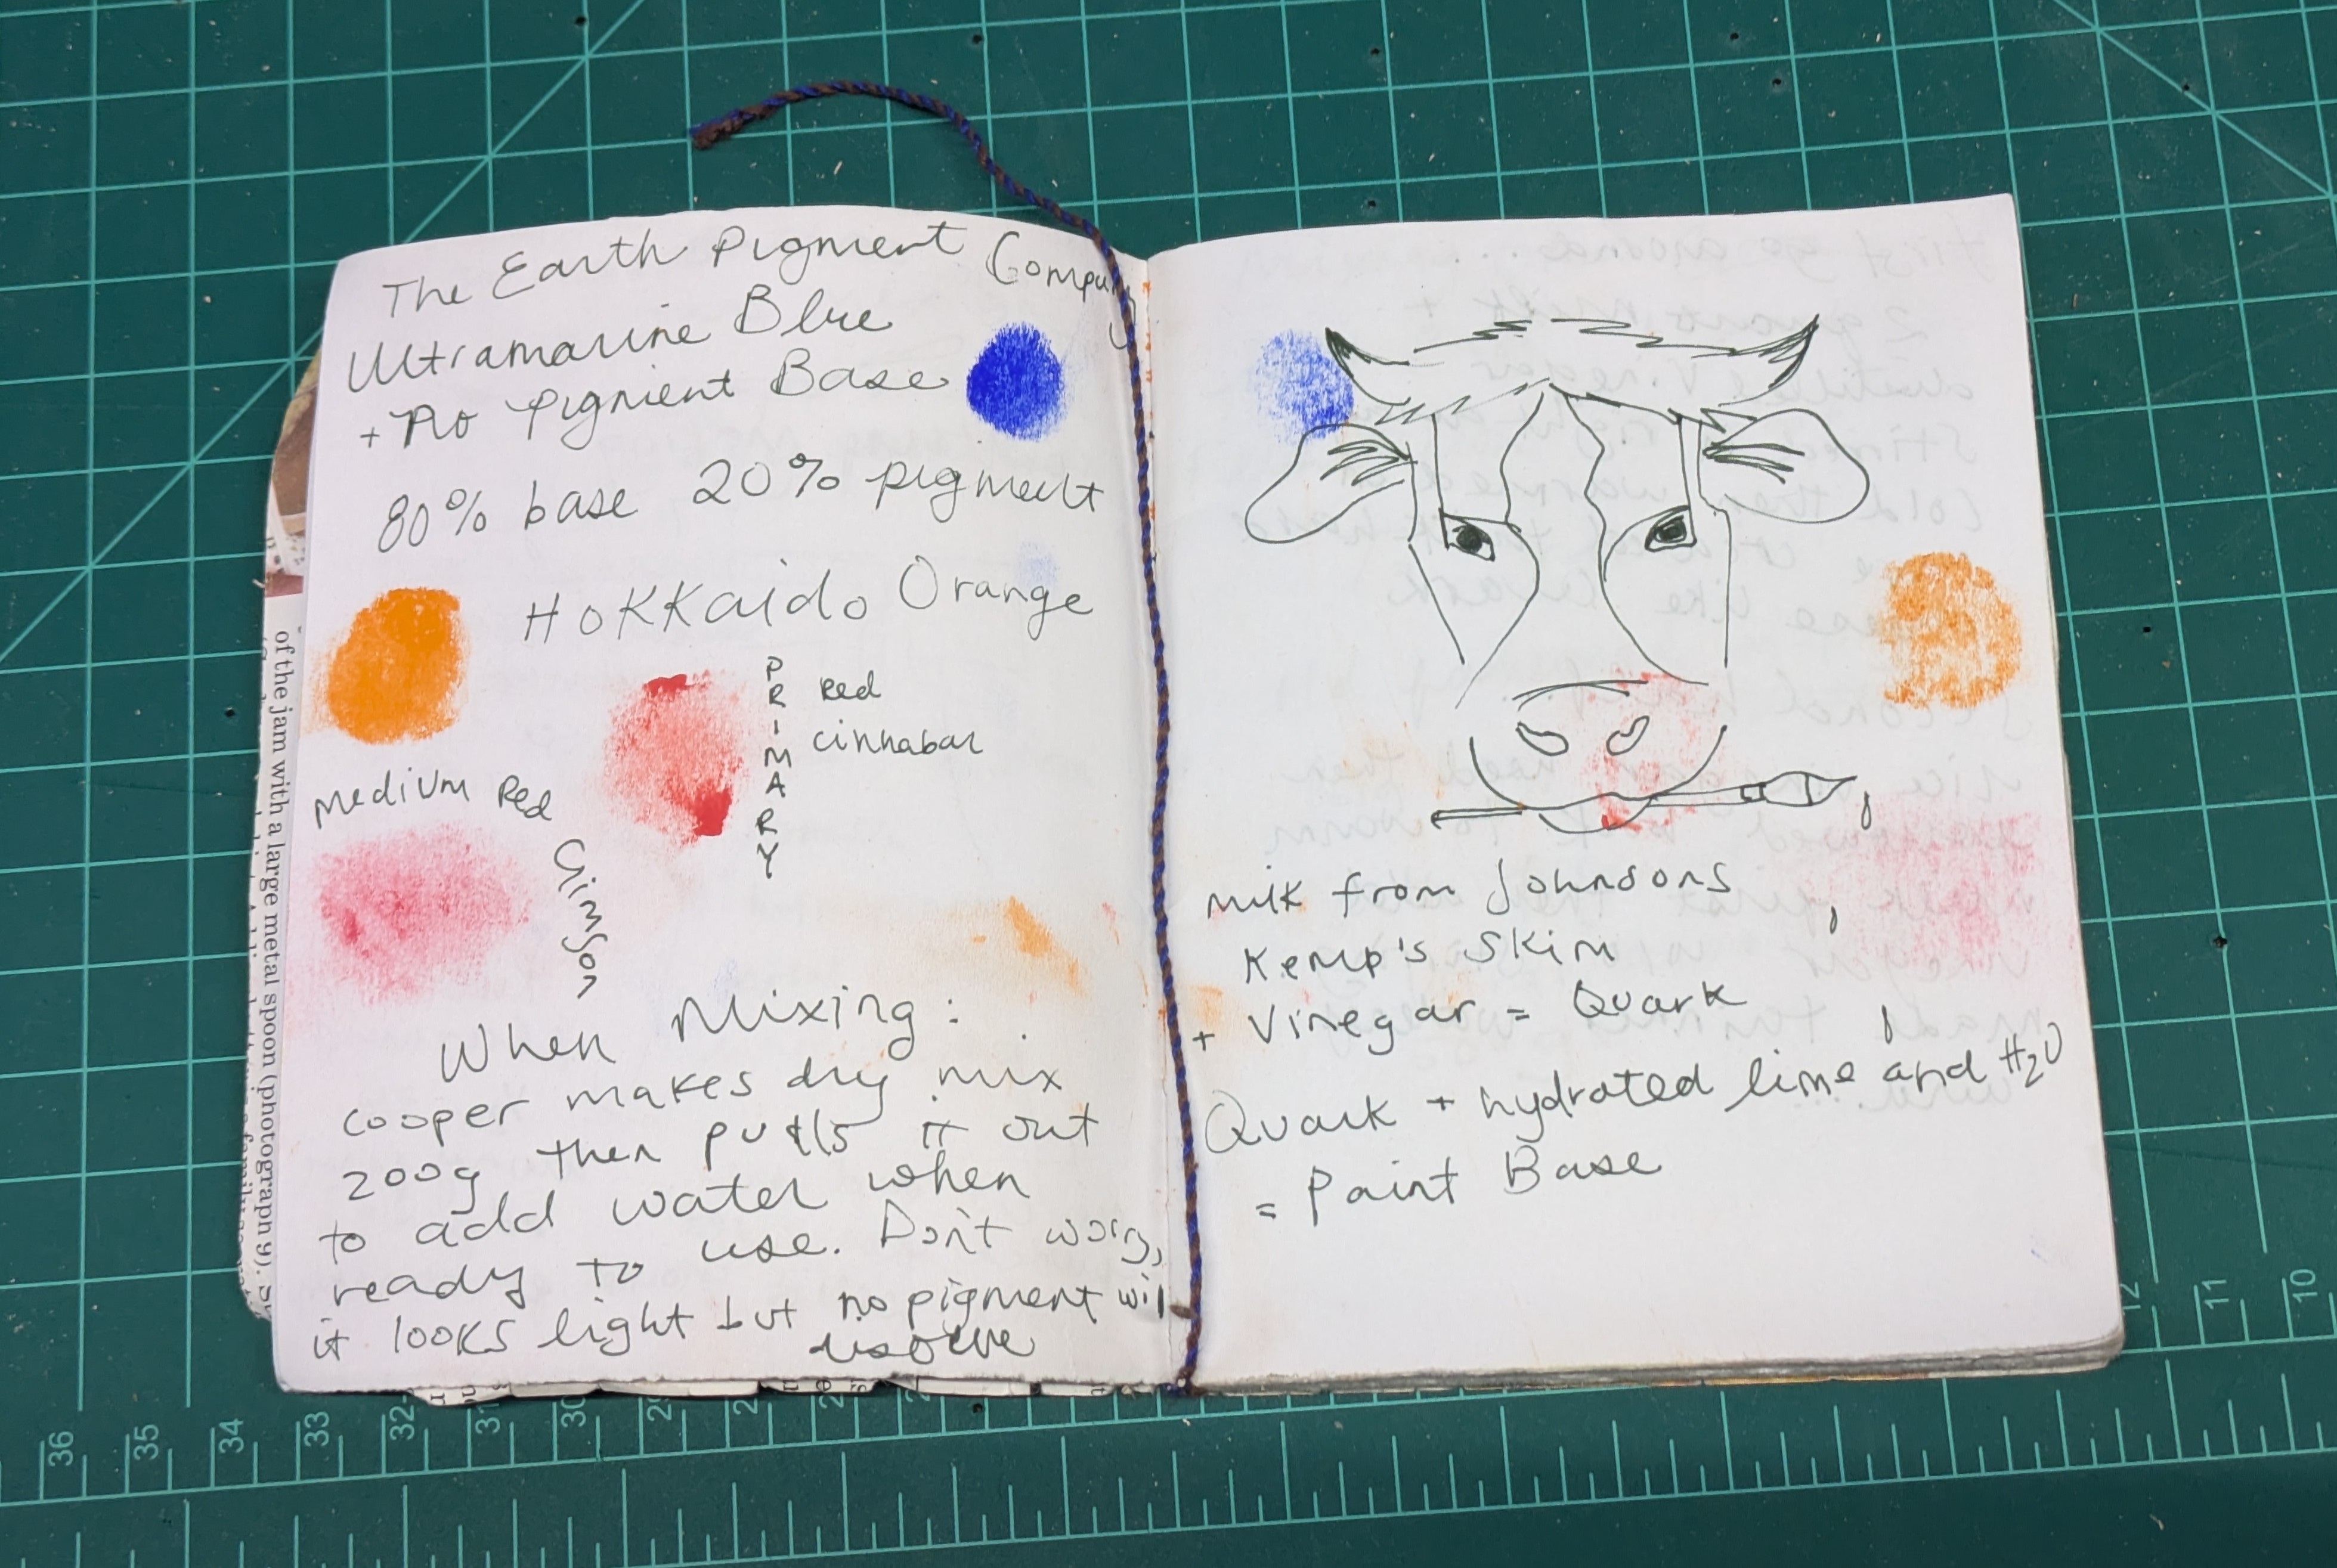 The Earth Pigment Company
Ultramarine Blue
+ No Pigment Base
80% base 20% pigment
Hokkaido Orange
PRIMARY
Red
cinnabar
Medium Red
Crimson
When Mixing:
cooper makes dry mix
200g then putts it out
to add water when
ready to use. Don't worry,
it looks light but no pigment will
disolve
Milk from Johnsons
Kemp's Skim
+ Vinegar = Quark
Quark + hydrated lime and H2O
= Paint Base
of the jam with a large metal spoon (photograph 9). S
36 35 34 33 32 31 30 29
12 11 10